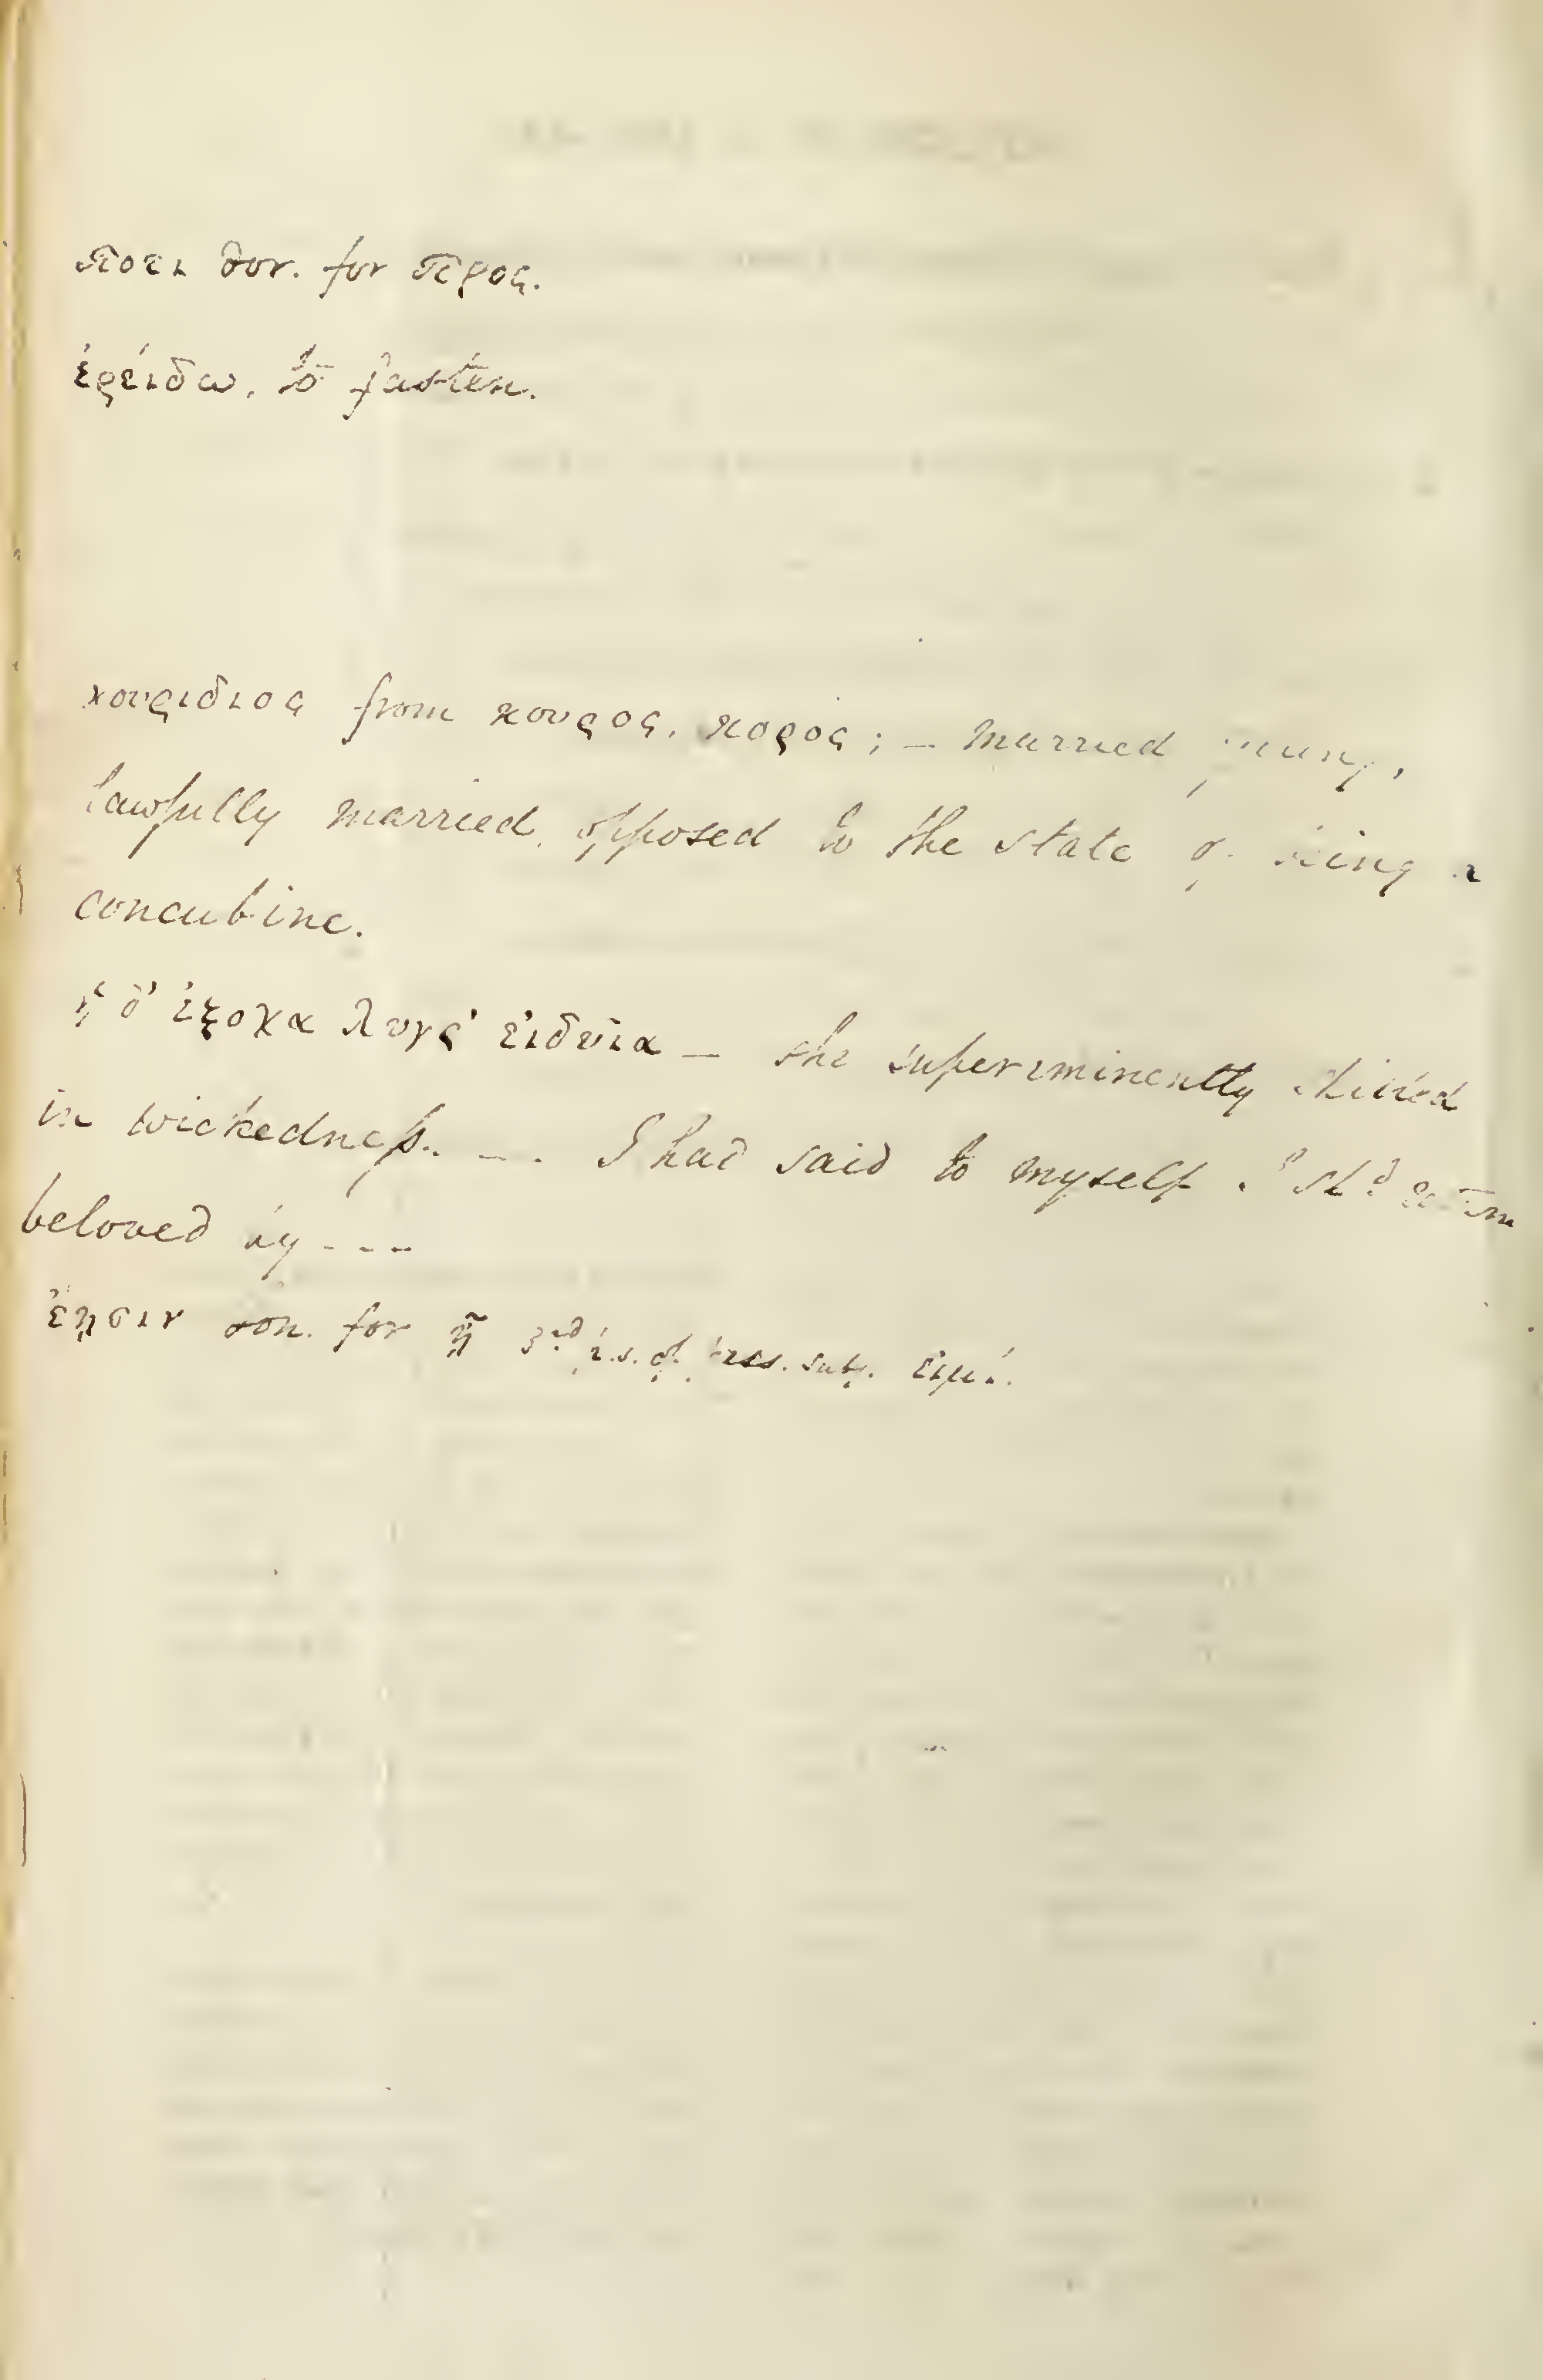 ποτι δor. for προς.
ἐρείδω, to fasten.
κουριδιος from κουρος, κορος; – married young,
lawfully married, opposed to the state of being a
concubine.
ἡ δ' ἐξοχα λυγρ' εἰδυῖα – she supereminently skilled
in wickedness. – . I had said to myself.
beloved by - - -
ἐῃσιν ιon. for ᾖ 3rd p.s. of pres. subj. εἰμί.